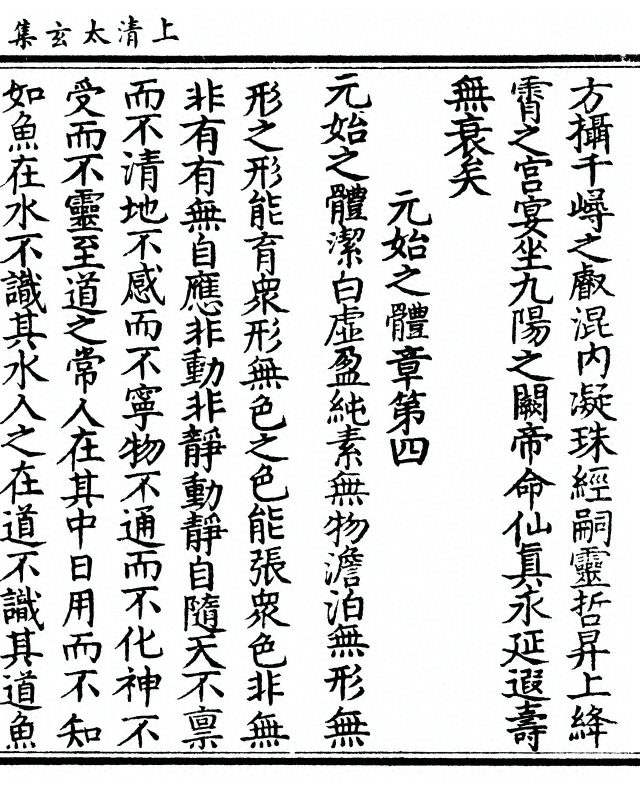 上清太玄集
方攝千嶂之叡混內凝珠經嗣靈哲昇上絳
霄之宮宴坐九陽之闕帝命仙眞永延遐壽
無衰矣
元始之體章第四
元始之體潔白虛盈純素無物澹泊無形無
形之形能育衆形無色之色能張衆色非無
非有有無自應非動非靜動靜自隨天不禀
而不清地不感而不寧物不通而不化神不
受而不靈至道之常人在其中日用而不知
如魚在水不識其水人之在道不識其道魚